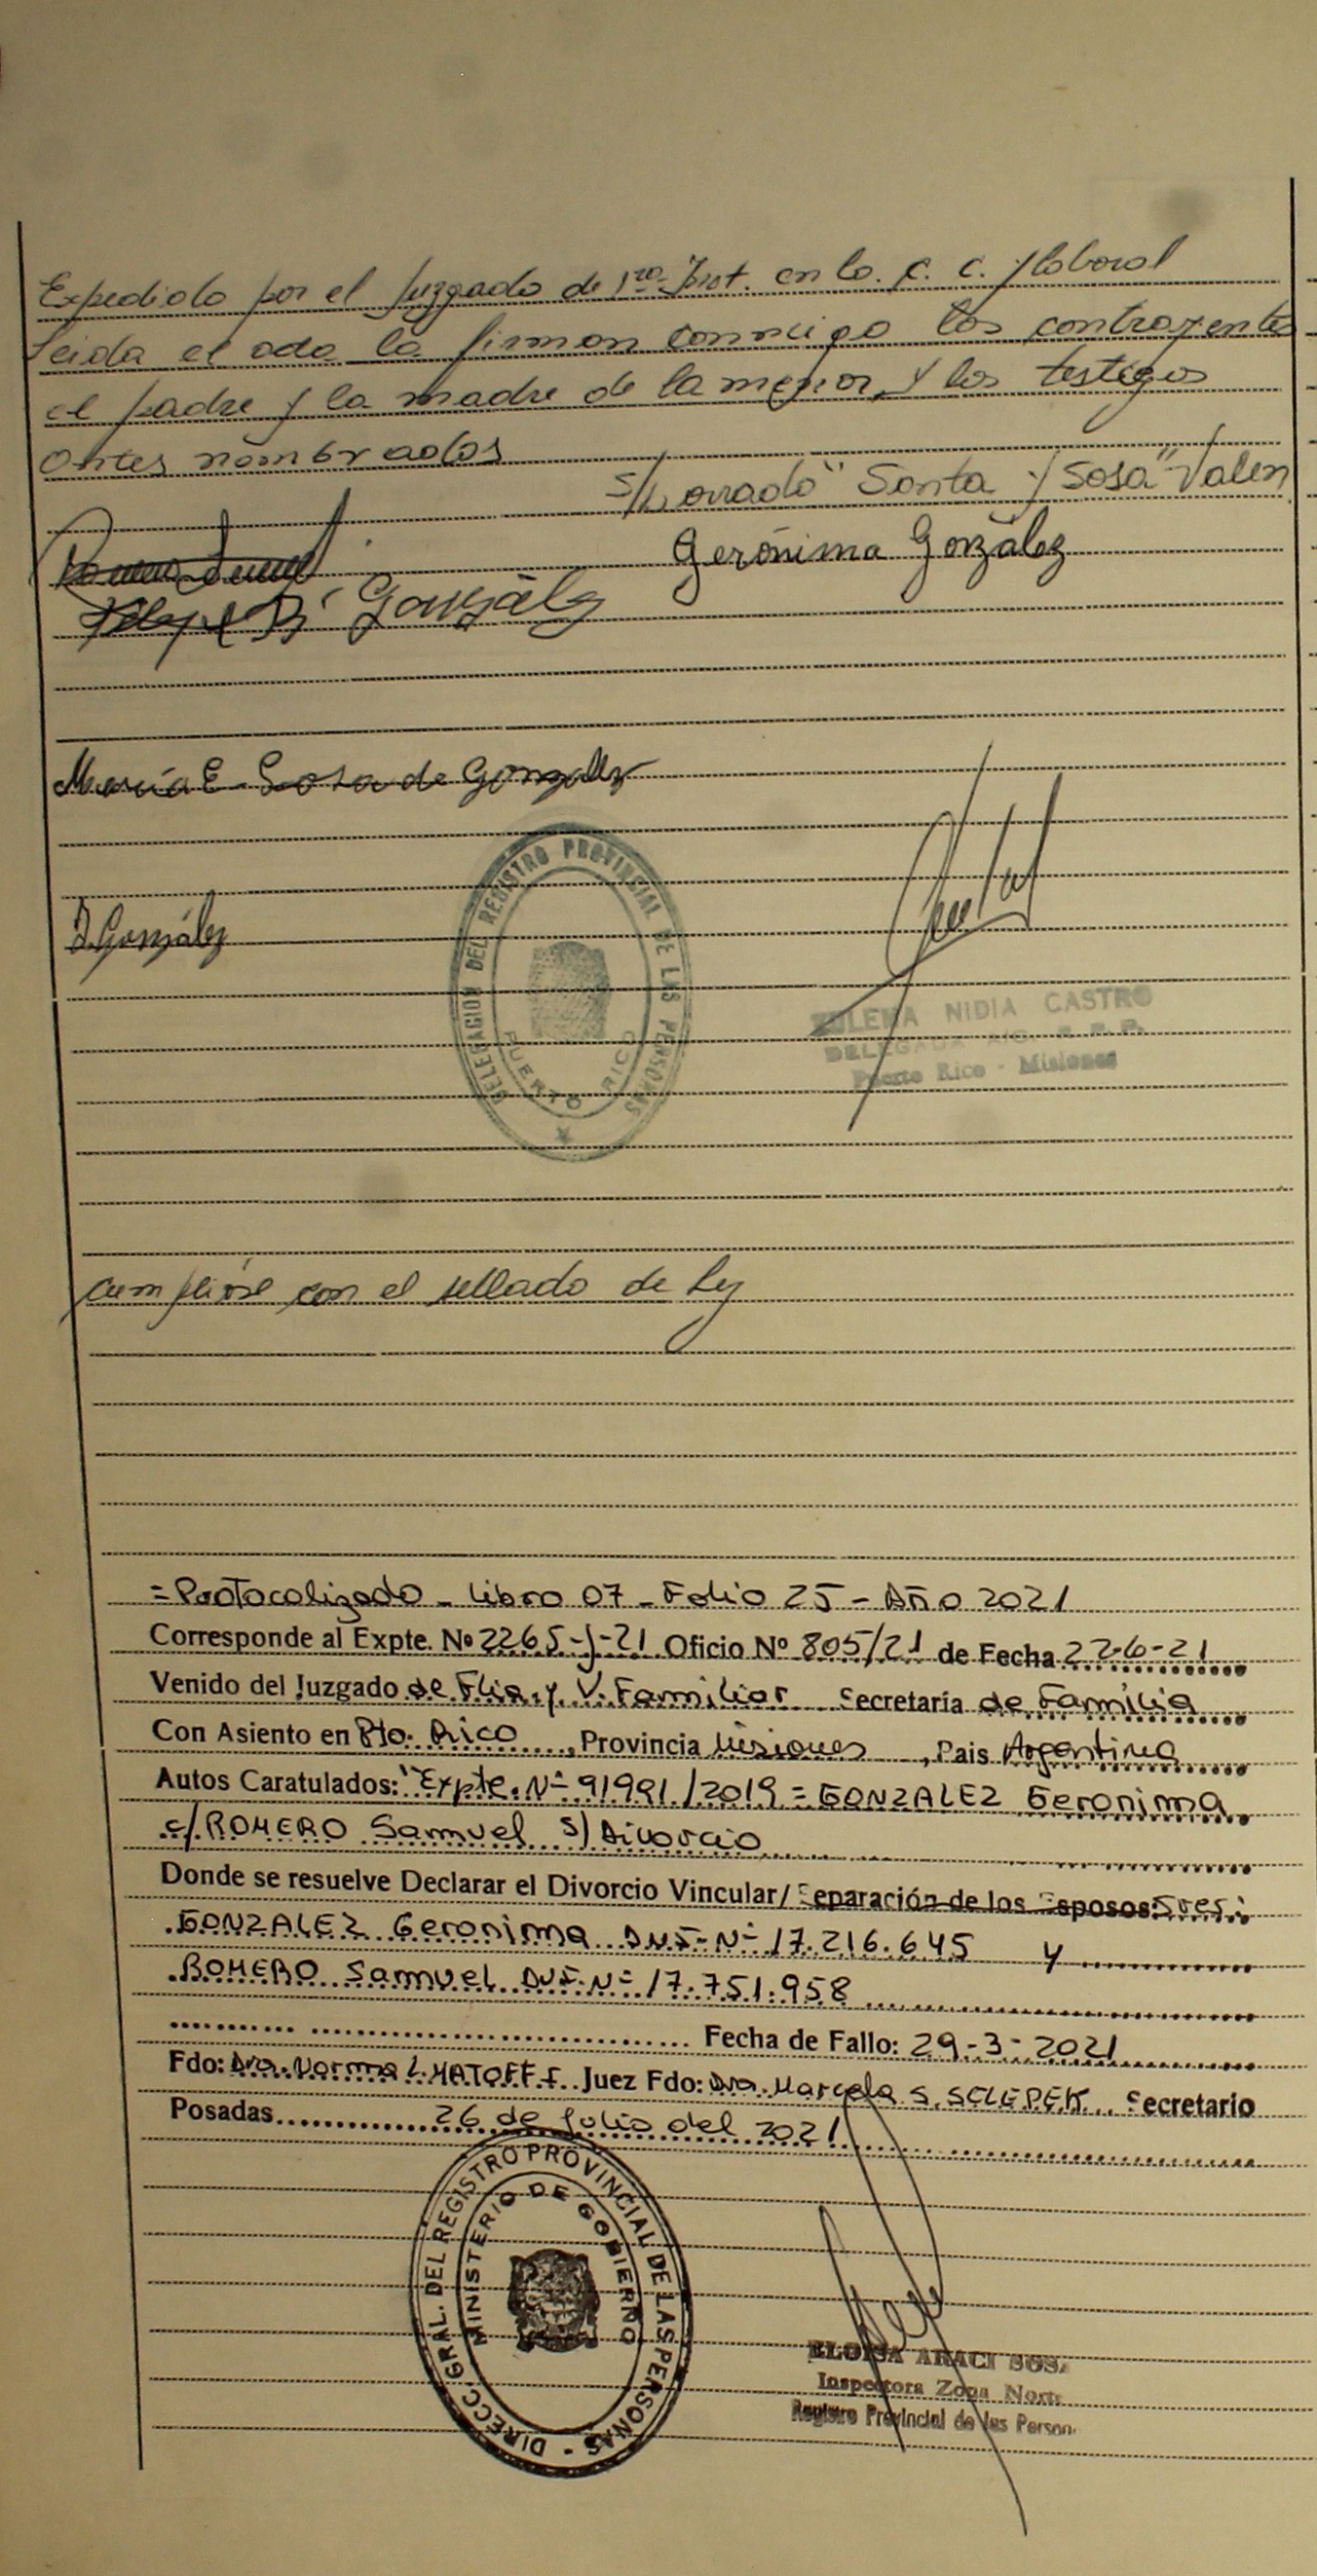 Expedido por el Juzgado de 1ra Inst. en lo C. C. y laboral
Leida el acta la firman conmigo los contrayentes
el padre y la madre de la menor, y los testigos
antes nombrados
S/borrado "Santa y Sosa" Valen
Gerónima González
González
María E. Sosa de Gonzalez
González
DELEGACION DEL REGISTRO PROVINCIAL DE LAS PERSONAS
PUERTO RICO
ZULEMA NIDIA CASTRO
DELEGADA
Puerto Rico - Misiones
cumplióse con el sellado de Ley
=Protocolizado - Libro 07 - Folio 25 - Año 2021
Corresponde al Expte. Nº 2265-J-21 Oficio Nº 805/21 de Fecha 22-6-21
Venido del Juzgado de Flia. y V. Familiar Secretaría de Familia
Con Asiento en Pto. Rico, Provincia Misiones, Pais Argentina
Autos Caratulados: "Expte. Nº 91991/2019 = GONZALEZ Geronima
c/ROMERO Samuel S/Divorcio
Donde se resuelve Declarar el Divorcio Vincular/ Separación de los Esposos: Sres:
GONZALEZ Geronima D.N.I. Nº 17.216.645 y
ROMERO Samuel D.N.I. Nº 17.751.958
Fecha de Fallo: 29-3-2021
Fdo: Dra. Norma L. MATOFF Juez Fdo: Dra. Marcela S. SELEPEK Secretario
Posadas 26 de Julio del 2021
DIRECC. GRAL. DEL REGISTRO PROVINCIAL DE LAS PERSONAS
MINISTERIO DE GOBIERNO
ELOISA ARACI SOSA
Inspectora Zona Norte
Registro Provincial de las Person